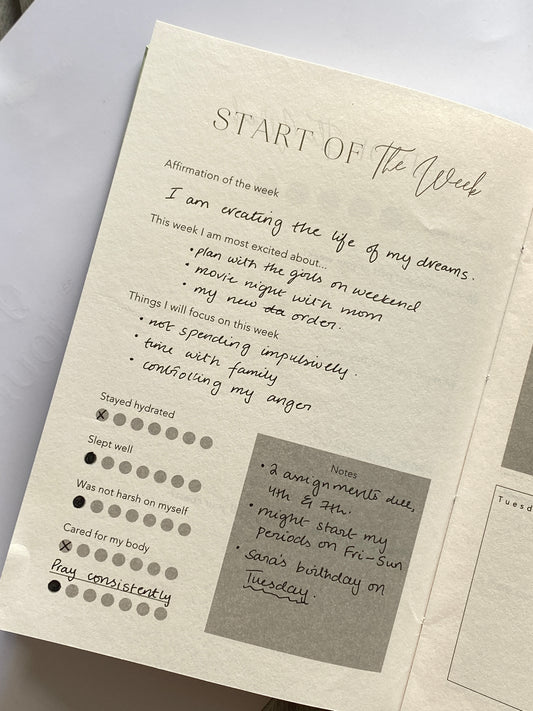 START OF The Week
Affirmation of the week
I am creating the life of my dreams.
This week I am most excited about...
• plan with the girls on weekend
• movie night with mom
• my new order.
Things I will focus on this week
• not spending impulsively.
• time with family
• controlling my anger
Stayed hydrated
X
Slept well
Was not harsh on myself
Cared for my body
X
Pray consistently
Notes
• 2 assignments due,
4th & 7th.
• might start my
periods on Fri-Sun
• Sara's birthday on
Tuesday.
Tuesd